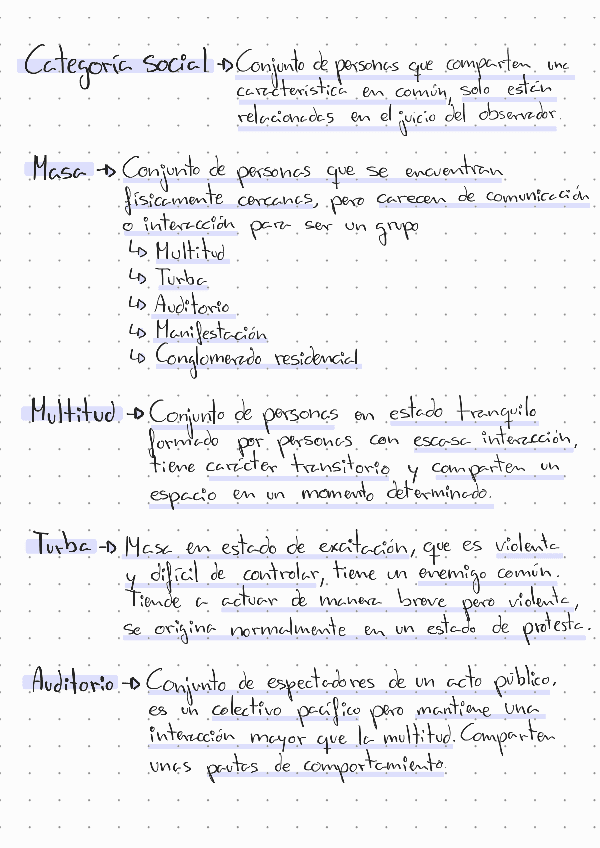 Categoría social → Conjunto de personas que comparten una
característica en común, solo están
relacionadas en el juicio del observador.
Masa → Conjunto de personas que se encuentran
físicamente cercanas, pero carecen de comunicación
o interacción para ser un grupo
↳ Multitud
↳ Turba
↳ Auditorio
↳ Manifestación
↳ Conglomerado residencial
Multitud → Conjunto de personas en estado tranquilo
formado por personas con escasa interacción,
tiene carácter transitorio y comparten un
espacio en un momento determinado.
Turba → Masa en estado de excitación, que es violenta
y difícil de controlar, tiene un enemigo común.
Tiende a actuar de manera breve pero violenta,
se origina normalmente en un estado de protesta.
Auditorio → Conjunto de espectadores de un acto público.
es un colectivo pacífico pero mantiene una
interacción mayor que la multitud. Comparten
unas pautas de comportamiento.